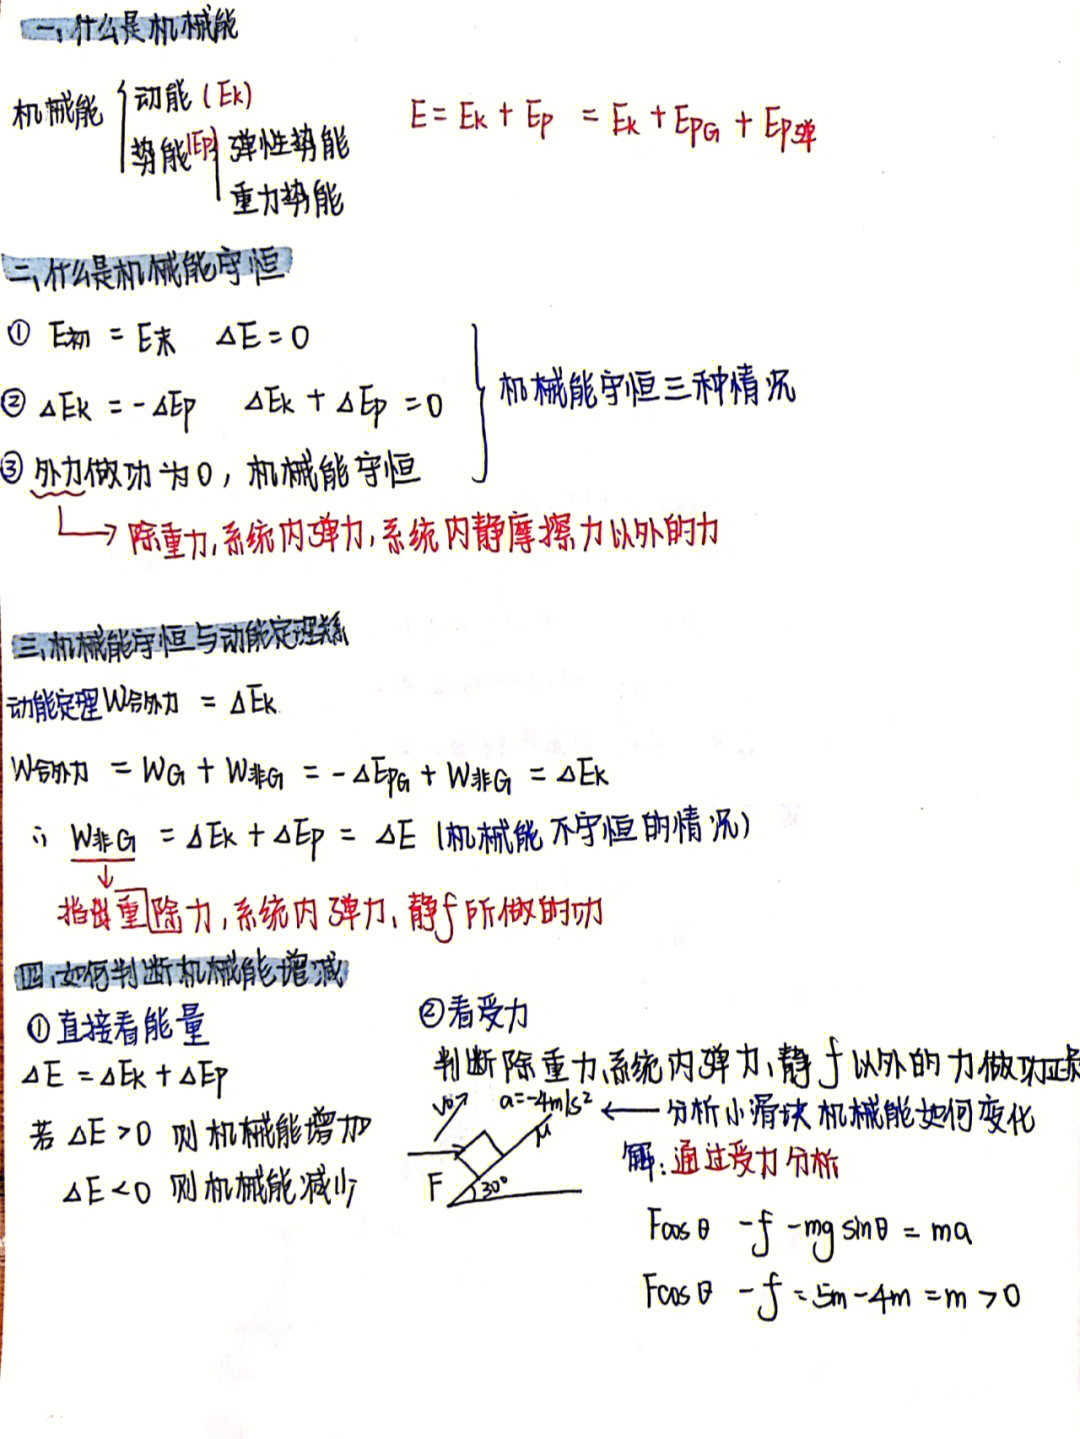 一、什么是机械能
机械能 动能(Ek)
势能(Ep) 弹性势能
重力势能
E = Ek + Ep = Ek + EpG + Ep弹
二、什么是机械能守恒
① E初 = E末 ΔE = 0
② ΔEk = -ΔEp ΔEk + ΔEp = 0
③ 外力做功为0, 机械能守恒
机械能守恒三种情况
→ 除重力,系统内弹力,系统内静摩擦力以外的力
三、机械能守恒与动能定理关系
动能定理 W合外力 = ΔEk
W合外力 = WG + W非G = -ΔEpG + W非G = ΔEk
∴ W非G = ΔEk + ΔEp = ΔE (机械能不守恒的情况)
指 重除力,系统内弹力,静f所做的功
四、如何判断机械能增减
① 直接看能量
ΔE = ΔEk + ΔEp
若 ΔE > 0 则机械能增加
ΔE < 0 则机械能减少
② 看受力
判断除重力、系统内弹力、静f以外的力做功正负
V0 a=-4m/s² ← 分析小滑块机械能如何变化
μ
F 30°
解:通过受力分析
Fcosθ - f - mg sinθ = ma
Fcosθ - f = 5m - 4m = m > 0